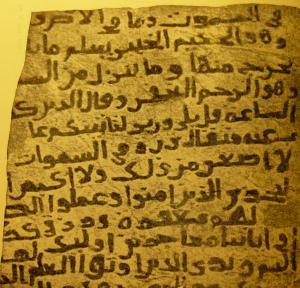 في السموت وما في الارض و
وهو الحكيم الخبير يعلم ما يلـ
يخرج منها وما ينزل من السـ
وهو الرحيم الغفور وقال الذين كـ
الساعه قل بلى وربي لتاتينكم عا
عنه مثقال ذره في السموات
لا اصغر من ذلك ولا اكبر ا
ليجزي الذين امنوا وعملوا الصـ
لهم مغفره ورزق كر
في اياتنا معجزين اولئك لهـ
اليم ويرى الذين اوتوا العلم الذ